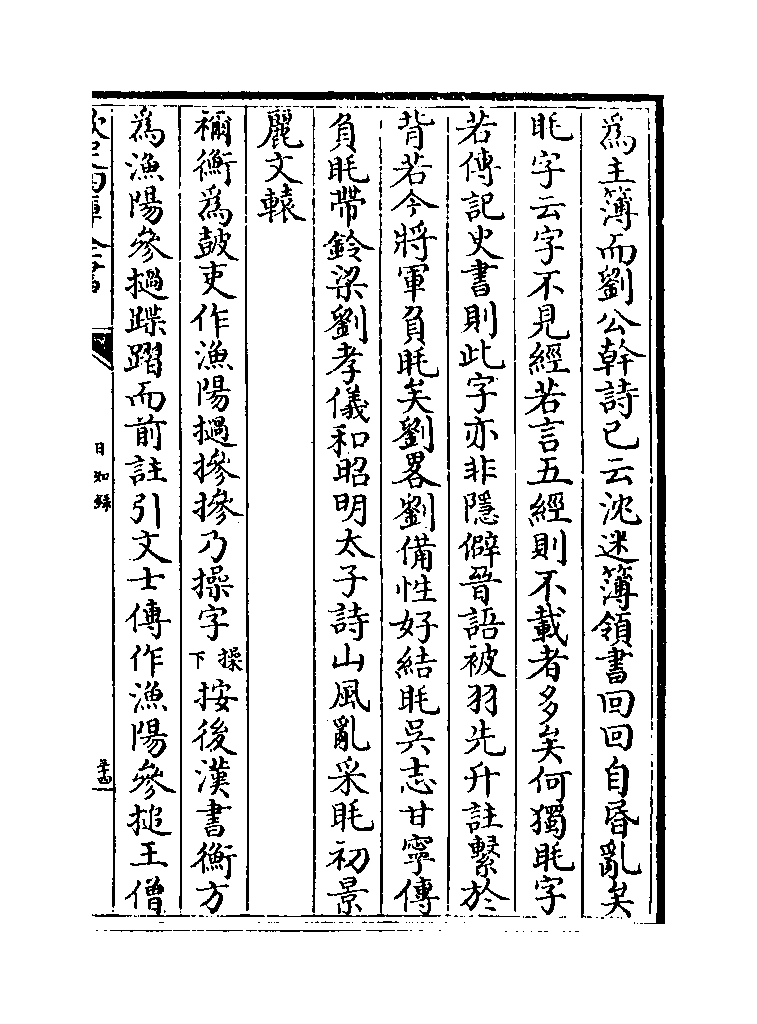 為主簿而劉公幹詩已云沈迷簿領書回回自昏亂矣
毦字云字不見經若言五經則不載者多矣何獨毦字
若傳記史書則此字亦非隱僻晉語被羽先升註繫於
背若今將軍負毦矣劉畧劉備性好結毦吳志甘寧傳
負毦帶鈴梁劉孝儀和昭明太子詩山風亂采毦初景
麗文轅
禰衡為鼓吏作漁陽撾摻摻乃操字操下按後漢書衡方
為漁陽參撾蹀躧而前註引文士傳作漁陽參搥王僧
欽定四庫全書
日知錄